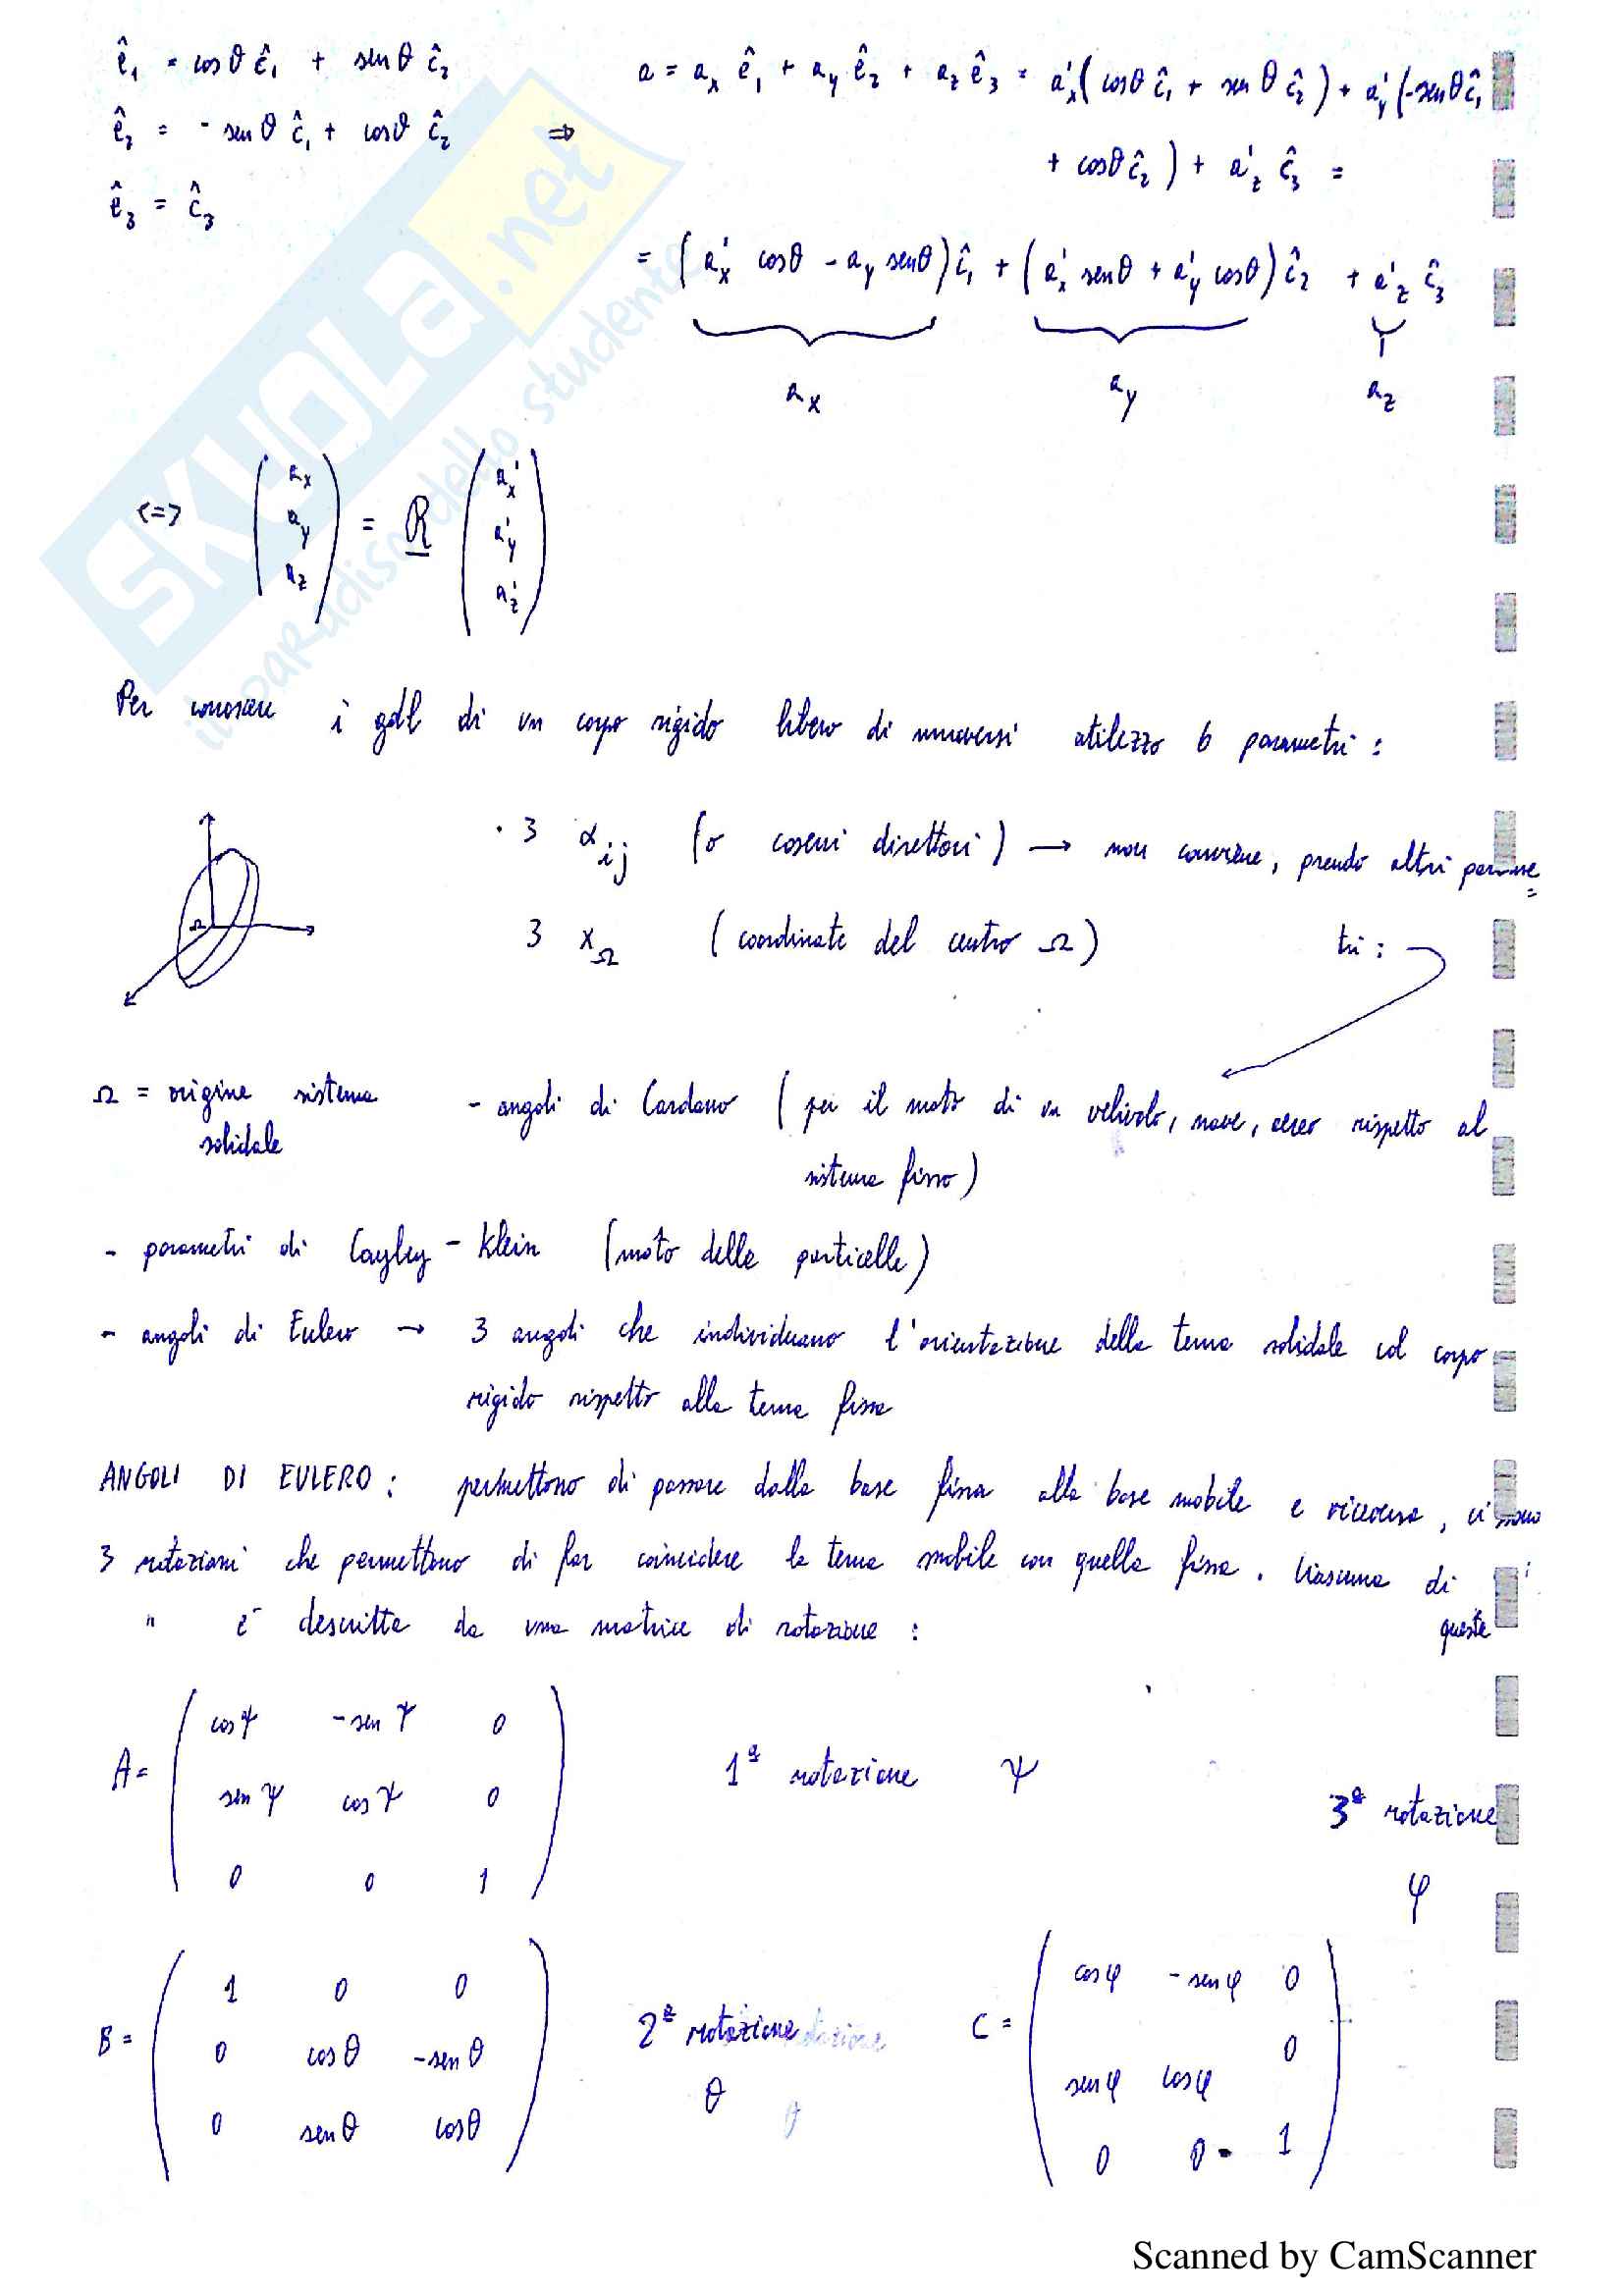 ê₁ = cosθ ĉ₁ + senθ ĉ₂
ê₂ = - senθ ĉ₁ + cosθ ĉ₂ ⇒
ê₃ = ĉ₃
a = aₓ ê₁ + a_y ê₂ + a_z ê₃ = a'ₓ( cosθ ĉ₁ + senθ ĉ₂ ) + a'_y (-senθ ĉ₁
+ cosθ ĉ₂ ) + a'_z ĉ₃ =
= ( a'ₓ cosθ - a_y senθ) ĉ₁ + ( a'ₓ senθ + a'_y cosθ) ĉ₂ + a'_z ĉ₃
aₓ a_y a_z
<=> ( aₓ a_y a_z ) = R ( a'ₓ a'_y a'_z )
SKUOLA.net
il paradiso dello studente
Per conoscere i gdl di un corpo rigido libero di muoversi utilizzo 6 parametri :
· 3 α_ij (o coseni direttori) → non conviene, prendo altri parame=
3 x_Ω ( coordinate del centro Ω ) tri :
Ω
Ω = origine sistema
solidale
- angoli di Cardano ( per il moto di un velivolo, nave, aereo rispetto al
sistema fisso )
- parametri di Cayley - Klein (moto delle particelle)
- angoli di Eulero → 3 angoli che individuano l'orientazione della terna solidale col corpo
rigido rispetto alla terna fissa
ANGOLI DI EULERO : permettono di passare dalla base fissa alla base mobile e viceversa, ci sono
3 rotazioni che permettono di far coincidere la terna mobile con quella fissa. Ciascuna di
queste
" è descritta da una matrice di rotazione :
cosψ -senψ 0
A = senψ cosψ 0 1ª rotazione ψ
0 0 1
3ª rotazione
φ
1 0 0
B = 0 cosθ -senθ 2ª rotazione
0 senθ cosθ θ
cosφ -senφ 0
C = senφ cosφ 0
0 0 1
Scanned by CamScanner